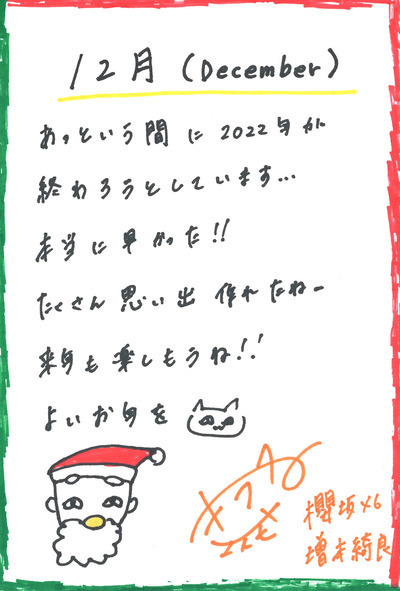 12月 (December)
あっという間に2022年が
終わろうとしています...
本当に早かった!!
たくさん思い出作れたねー
来年も楽しもうね!!
よいお年を
櫻坂46
増本綺良